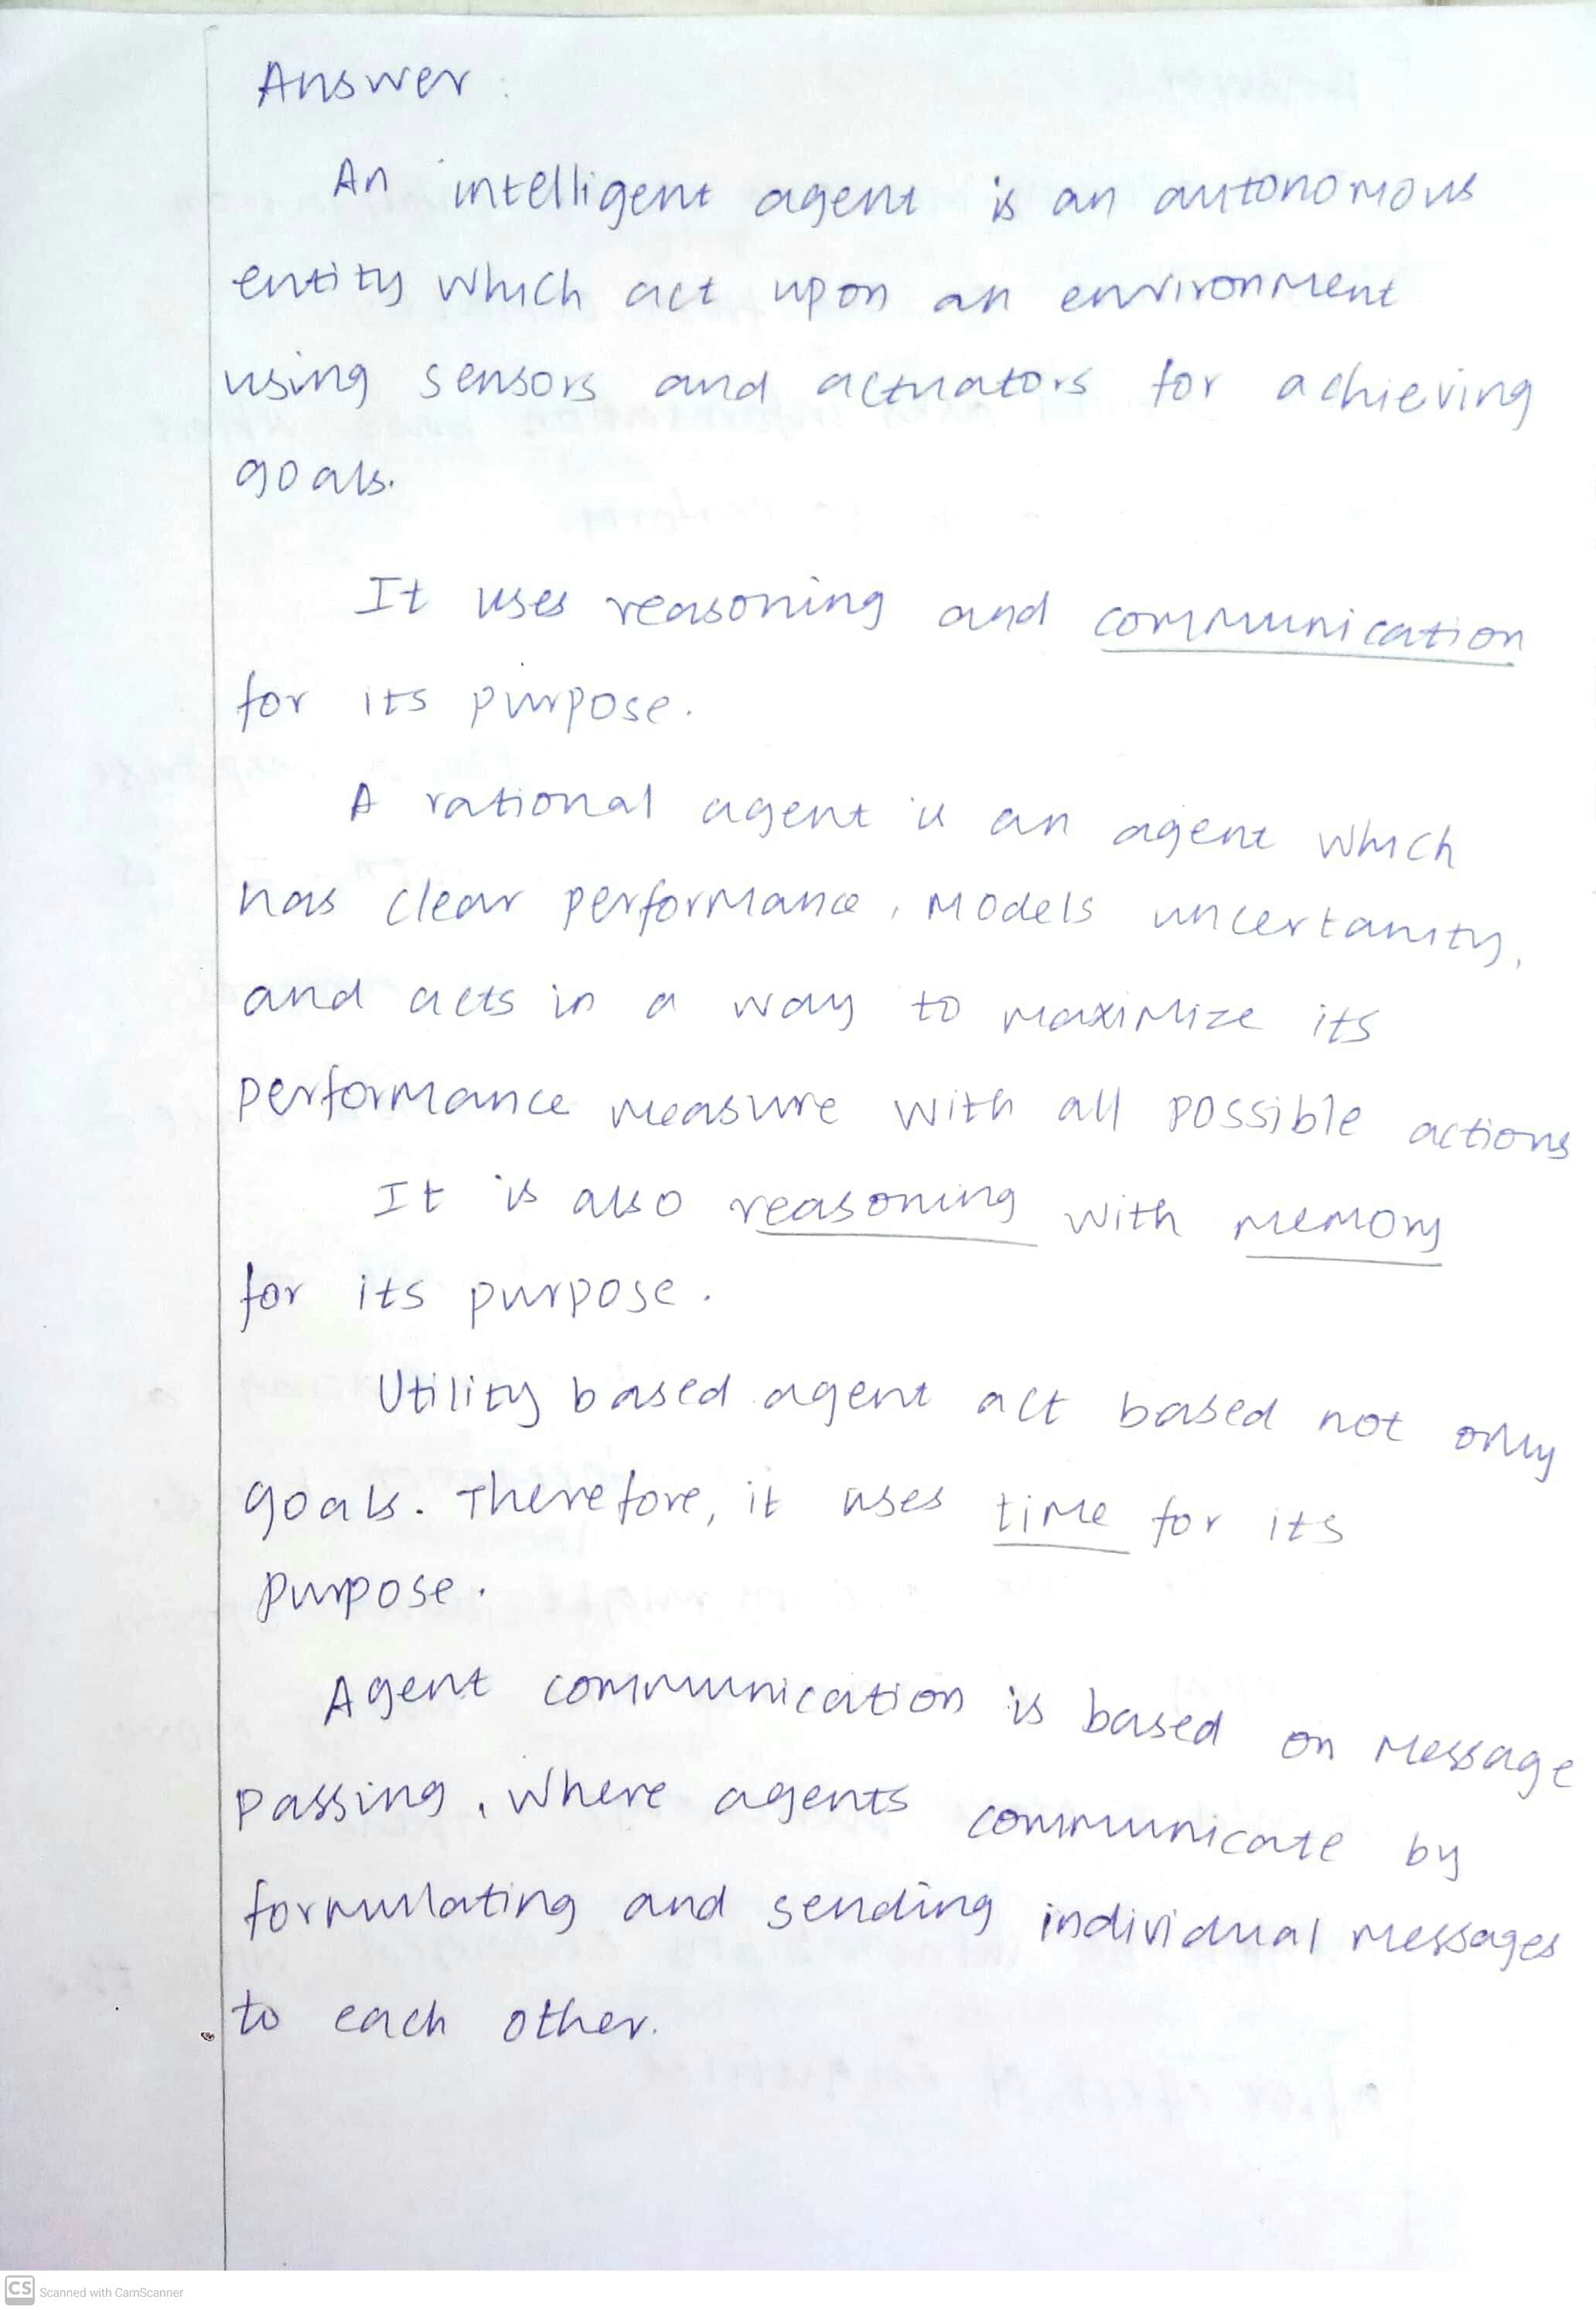 Answer:
An intelligent agent is an autonomous
entity which act upon an environment
using sensors and actuators for achieving
goals.
It uses reasoning and communication
for its purpose.
A rational agent is an agent which
has clear performance, models uncertanity,
and acts in a way to maximize its
performance measure with all possible actions
It is also reasoning with memory
for its purpose.
Utility based agent act based not only
goals. Therefore, it uses time for its
purpose.
Agent communication is based on message
passing, where agents communicate by
formulating and sending individual messages
to each other.
CS Scanned with CamScanner